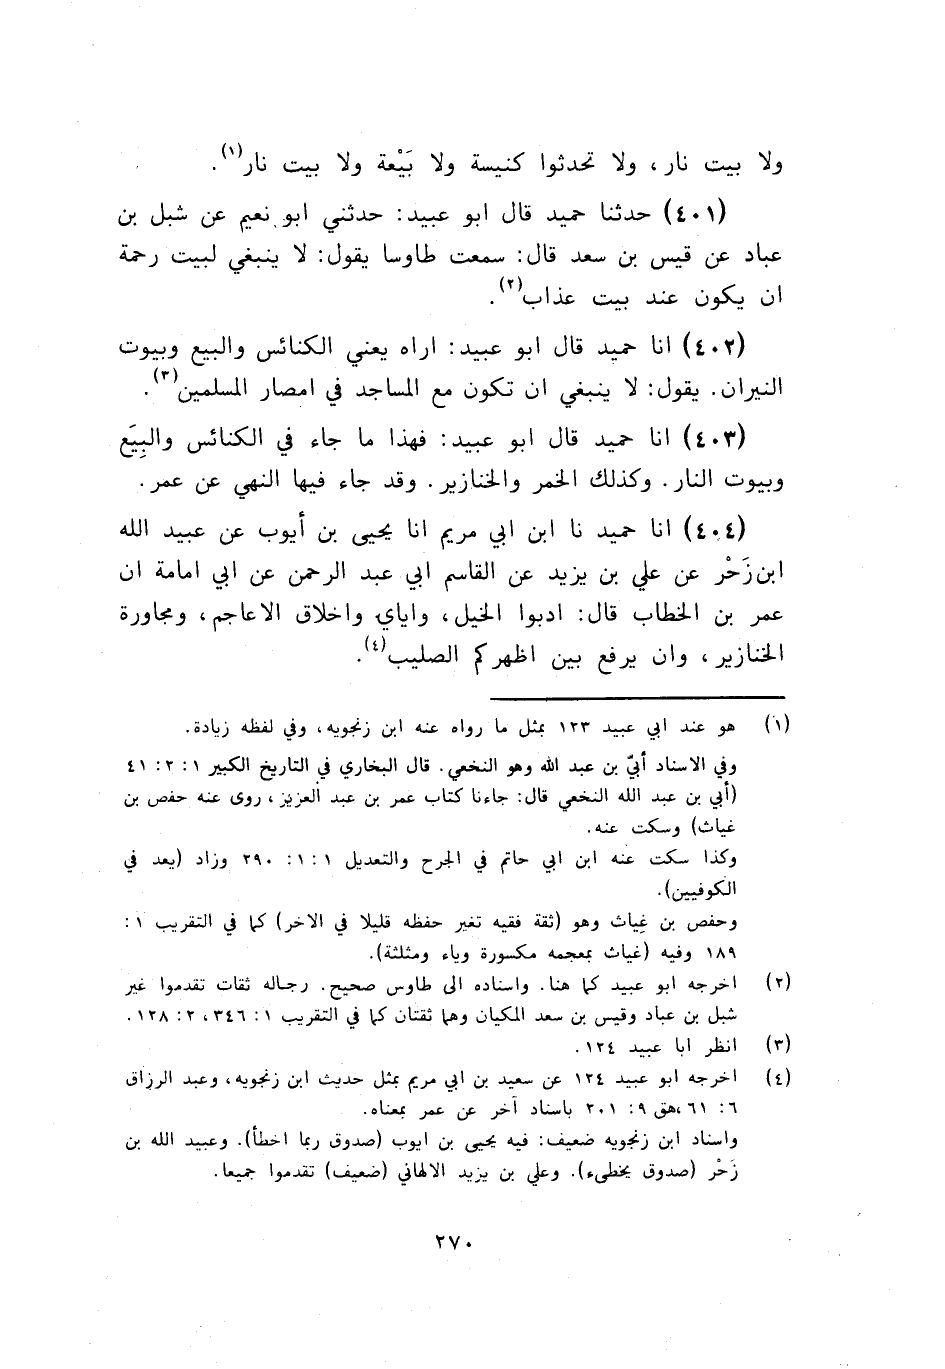 ولا بيت نار، ولا تحدثوا كنيسة ولا بَيْعة ولا بيت نار(١).
(٤٠١) حدثنا حميد قال ابو عبيد: حدثني ابو نعيم عن شبل بن
عباد عن قيس بن سعد قال: سمعت طاوسا يقول: لا ينبغي لبيت رحمة
ان يكون عند بيت عذاب(٢).
(٤٠٢) انا حميد قال ابو عبيد: اراه يعني الكنائس والبيع وبيوت
النيران. يقول: لا ينبغي ان تكون مع المساجد في امصار المسلمين(٣).
(٤٠٣) انا حميد قال ابو عبيد: فهذا ما جاء في الكنائس والبِيَع
وبيوت النار. وكذلك الخمر والخنازير. وقد جاء فيها النهي عن عمر.
(٤٠٤) انا حميد نا ابن ابي مريم انا يحيى بن أيوب عن عبيد الله
ابن زَحْر عن علي بن يزيد عن القاسم ابي عبد الرحمن عن ابي امامة ان
عمر بن الخطاب قال: ادبوا الخيل، واياي واخلاق الاعاجم، ومجاورة
الخنازير، وان يرفع بين اظهركم الصليب(٤).
(١) هو عند ابي عبيد ١٢٣ بمثل ما رواه عنه ابن زنجويه، وفي لفظه زيادة.
وفي الاسناد أبيّ بن عبد الله وهو النخعي. قال البخاري في التاريخ الكبير ١: ٢: ٤١
(أبي بن عبد الله النخعي قال: جاءنا كتاب عمر بن عبد العزيز، روى عنه حفص بن
غياث) وسكت عنه.
وكذا سكت عنه ابن ابي حاتم في الجرح والتعديل ١: ١: ٢٩٠ وزاد (يعد في
الكوفيين).
وحفص بن غِياث وهو (ثقة فقيه تغير حفظه قليلا في الاخر) كما في التقريب ١:
١٨٩ وفيه (غياث بمعجمه مكسورة وياء ومثلثة).
(٢) اخرجه ابو عبيد كما هنا. واسناده الى طاوس صحيح. رجاله ثقات تقدموا غير
شبل بن عباد وقيس بن سعد المكيان وهما ثقتان كما في التقريب ١: ٣٤٦، ٢: ١٢٨.
(٣) انظر ابا عبيد ١٢٤.
(٤) اخرجه ابو عبيد ١٢٤ عن سعيد بن ابي مريم بمثل حديث ابن زنجويه، وعبد الرزاق
٦: ٦١، هق ٩: ٢٠١ باسناد آخر عن عمر بمعناه.
واسناد ابن زنجويه ضعيف: فيه يحيى بن ايوب (صدوق ربما اخطأ). وعبيد الله بن
زَحْر (صدوق يخطىء). وعلي بن يزيد الالهاني (ضعيف) تقدموا جميعا.
٢٧٠